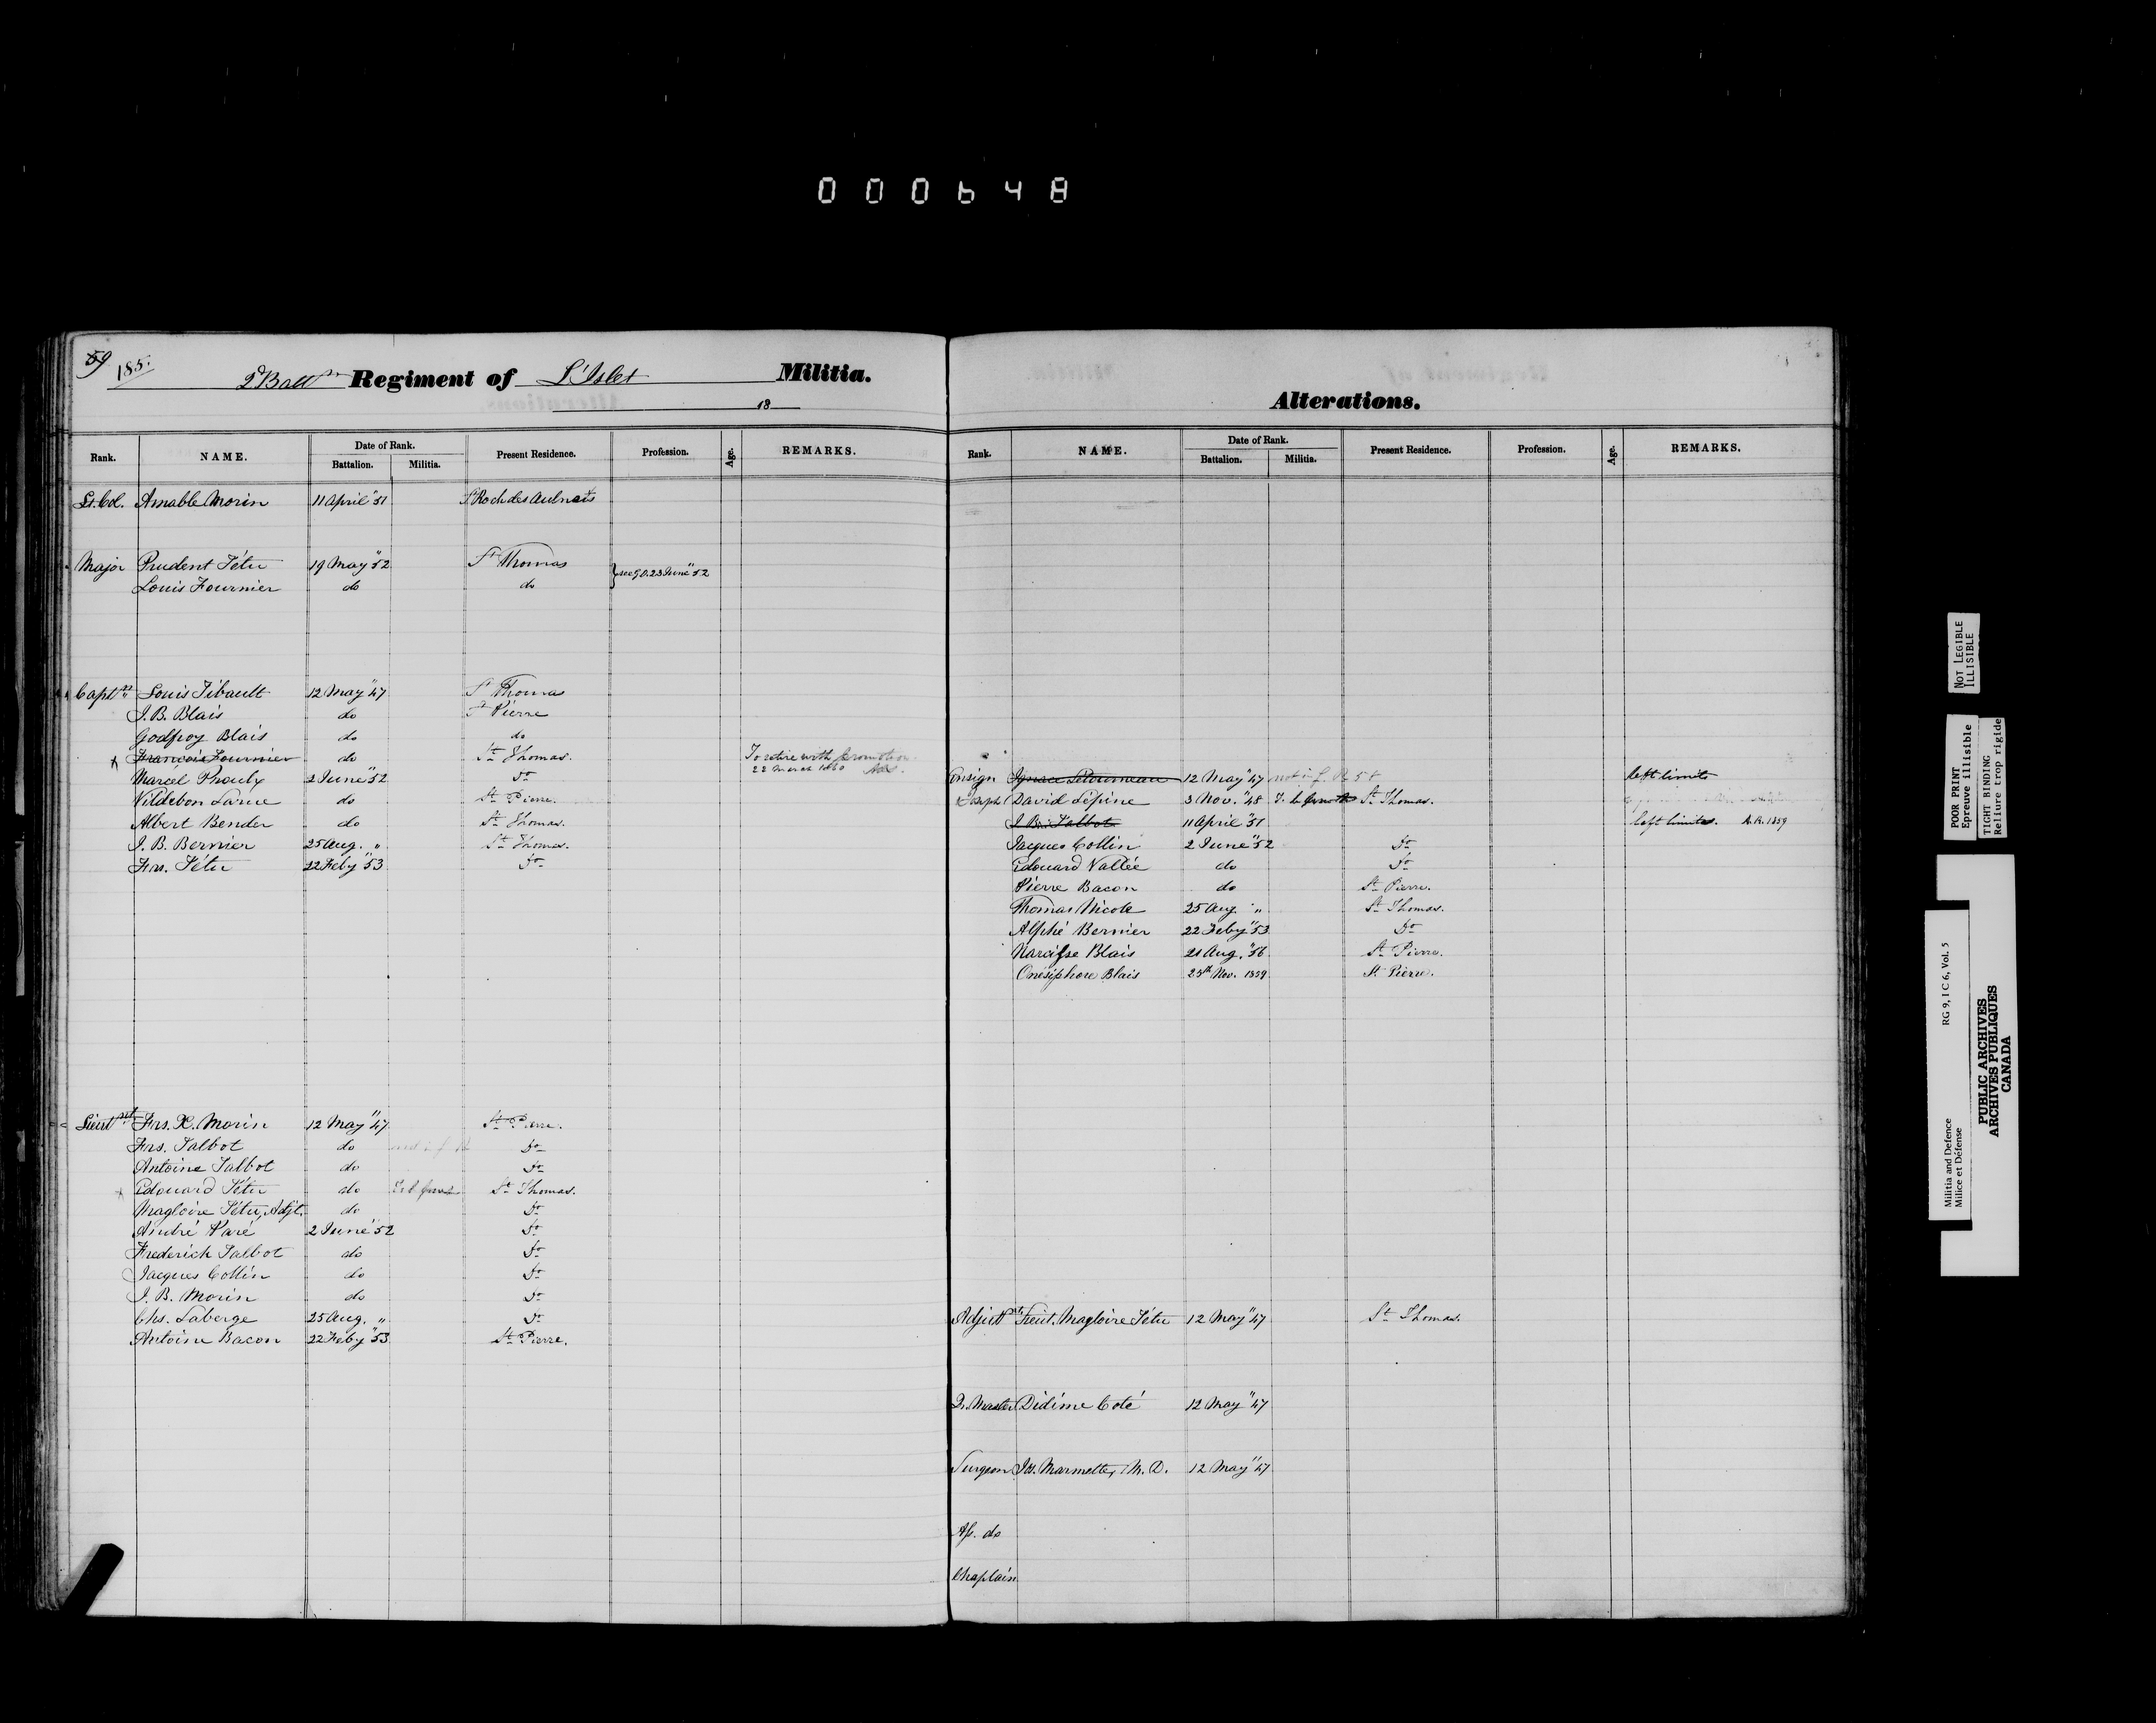 000648
59
185.
2d Battn Regiment of L'Islet Militia.
18
Rank. NAME. Date of Rank. Battalion. Militia. Present Residence. Profession. Age. REMARKS.
Lt. Col. Amable Morin 11 April "51 St Roch des Aulnets
Major Prudent Tétu 19 May "52 St Thomas
Louis Fournier do do } see G.O. 23 June "52
Captns Louis Tibault 12 May "47 St Thomas
J. B. Blais do St Pierre
Godfroy Blais do do
x François Fournier do St Thomas. To retire with promotion
22 March 1860
Marcel Proulx 2 June "52 Do
Vildebon Larue do St Pierre.
Albert Bender do St Thomas.
J. B. Bernier 25 Aug. " St Thomas.
Frs. Tétu 22 Feby "53 Do
Lieutnts Frs. X. Morin 12 May "47 St Pierre.
Frs. Talbot do Do
Antoine Talbot do Do
x Edouard Tétu do St Thomas.
Magloire Tétu, Adjt. do Do
André Paré 2 June "52 Do
Frederick Talbot do Do
Jacques Collin do Do
J. B. Morin do Do
Chs. Laberge 25 Aug. " Do
Antoine Bacon 22 Feby "53 St Pierre.
Alterations.
Rank. NAME. Date of Rank. Battalion. Militia. Present Residence. Profession. Age. REMARKS.
Ensign Ignace Letourneau 12 May "47 not in L. R 58 left limits
David Lépine 3 Nov. "48 St Thomas.
J. B. Talbot 11 April "51 left limits. A.R. 1859
Jacques Collin 2 June "52 Do
Edouard Vallée do Do
Pierre Bacon do St Pierre.
Thomas Nicole 25 Aug. " St Thomas.
Alphé Bernier 22 Feby "53 Do
Narcisse Blais 21 Aug. "56 St Pierre.
Onésiphore Blais 25th Nov. 1859 St Pierre.
Adjutnts Lieut. Magloire Tétu 12 May "47 St Thomas.
Qr. Master Didime Coté 12 May "47
Surgeon Jos. Marmette, M.D. 12 May "47
As. do
Chaplain
NOT LEGIBLE
ILLISIBLE
POOR PRINT
Epreuve illisible
TIGHT BINDING
Reliure trop rigide
Militia and Defence
Milice et Défense
RG 9, I C 6, Vol. 5
PUBLIC ARCHIVES
ARCHIVES PUBLIQUES
CANADA